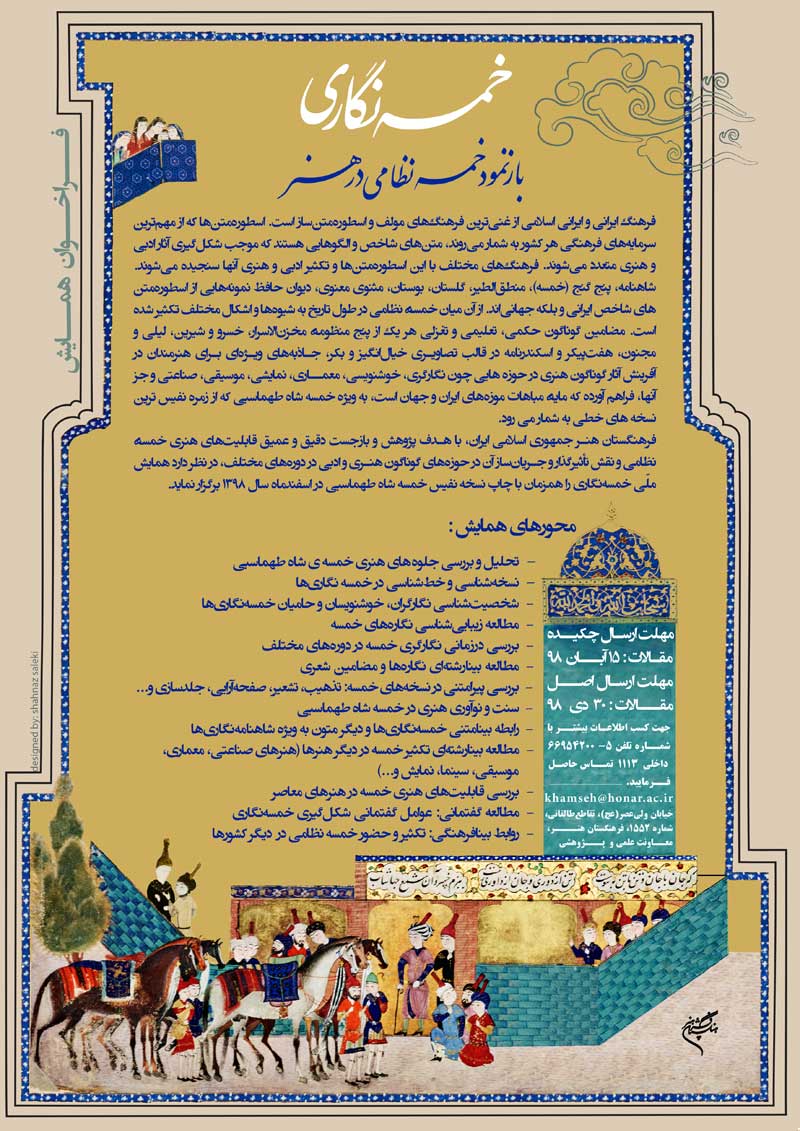 خمسه نگاری
بازنمود خمسه نظامی در هنر
فراخوان همایش
فرهنگ ایرانی و ایرانی اسلامی از غنی‌ترین فرهنگ‌های مولف و اسطوره‌متن‌ساز است. اسطوره‌متن‌ها که از مهم‌ترین
سرمایه‌های فرهنگی هر کشور به شمار می‌روند، متن‌های شاخص و الگوهایی هستند که موجب شکل‌گیری آثار ادبی
و هنری متعدد می‌شوند. فرهنگ‌های مختلف با این اسطوره‌متن‌ها و تکثیر ادبی و هنری آنها سنجیده می‌شوند.
شاهنامه، پنج گنج (خمسه)، منطق‌الطیر، گلستان، بوستان، مثنوی معنوی، دیوان حافظ نمونه‌هایی از اسطوره‌متن
های شاخص ایرانی و بلکه جهانی‌اند. از آن میان خمسه نظامی در طول تاریخ به شیوه‌ها و اشکال مختلف تکثیر شده
است. مضامین گوناگون حکمی، تعلیمی و تغزلی هر یک از پنج منظومه، مخزن‌الاسرار، خسرو و شیرین، لیلی و
مجنون، هفت‌پیکر و اسکندرنامه در قالب تصاویری خیال‌انگیز و بکر، جاذبه‌های ویژه‌ای برای هنرمندان در
آفرینش آثار گوناگون هنری در حوزه هایی چون نگارگری، خوشنویسی، معماری، نمایشی، موسیقی، صناعتی و جز
آنها، فراهم آورده که مایه مباهات موزه‌های ایران و جهان است، به ویژه خمسه شاه طهماسبی که از زمره نفیس ترین
نسخه های خطی به شمار می رود.
فرهنگستان هنر جمهوری اسلامی ایران، با هدف پژوهش و بازجست دقیق و عمیق قابلیت‌های هنری خمسه
نظامی و نقش تأثیرگذار و جریان‌ساز آن در حوزه‌های گوناگون هنری و ادبی در دوره‌های مختلف، در نظر دارد همایش
ملّی خمسه‌نگاری را همزمان با چاپ نسخه نفیس خمسه شاه طهماسبی در اسفندماه سال ۱۳۹۸ برگزار نماید.
محورهای همایش :
- تحلیل و بررسی جلوه‌های هنری خمسه ی شاه طهماسبی
- نسخه‌شناسی و خط‌شناسی در خمسه نگاری‌ها
- شخصیت‌شناسی نگارگران، خوشنویسان و حامیان خمسه‌نگاری‌ها
- مطالعه زیبایی‌شناسی نگاره‌های خمسه
- بررسی درزمانی نگارگری خمسه در دوره‌های مختلف
- مطالعه بینارشته‌ای نگاره‌ها و مضامین شعری
- بررسی پیرامتنی در نسخه‌های خمسه: تذهیب، تشعیر، صفحه‌آرایی، جلدسازی و...
- سنت و نوآوری هنری در خمسه شاه طهماسبی
- رابطه بینامتنی خمسه‌نگاری‌ها و دیگر متون به ویژه شاهنامه‌نگاری‌ها
- مطالعه بینارشته‌ای تکثیر خمسه در دیگر هنرها (هنرهای صناعتی، معماری،
موسیقی، سینما، نمایش و...)
- بررسی قابلیت‌های هنری خمسه در هنرهای معاصر
- مطالعه گفتمانی: عوامل گفتمانی شکل‌گیری خمسه‌نگاری
- روابط بینافرهنگی: تکثیر و حضور خمسه نظامی در دیگر کشورها
مهلت ارسال چکیده
مقالات : ۱۵ آبان ۹۸
مهلت ارسال اصل
مقالات : ۳۰ دی ۹۸
جهت کسب اطلاعات بیشتر با
شماره تلفن ۵- ۶۶۹۵۴۲۰۰
داخلی ۱۱۱۳ تماس حاصل
فرمایید.
khamseh@honar.ac.ir
خیابان ولی‌عصر(عج)، تقاطع طالقانی،
شماره ۱۵۵۲، فرهنگستان هنر،
معاونت علمی و پژوهشی
designed by: shahnaz saleki